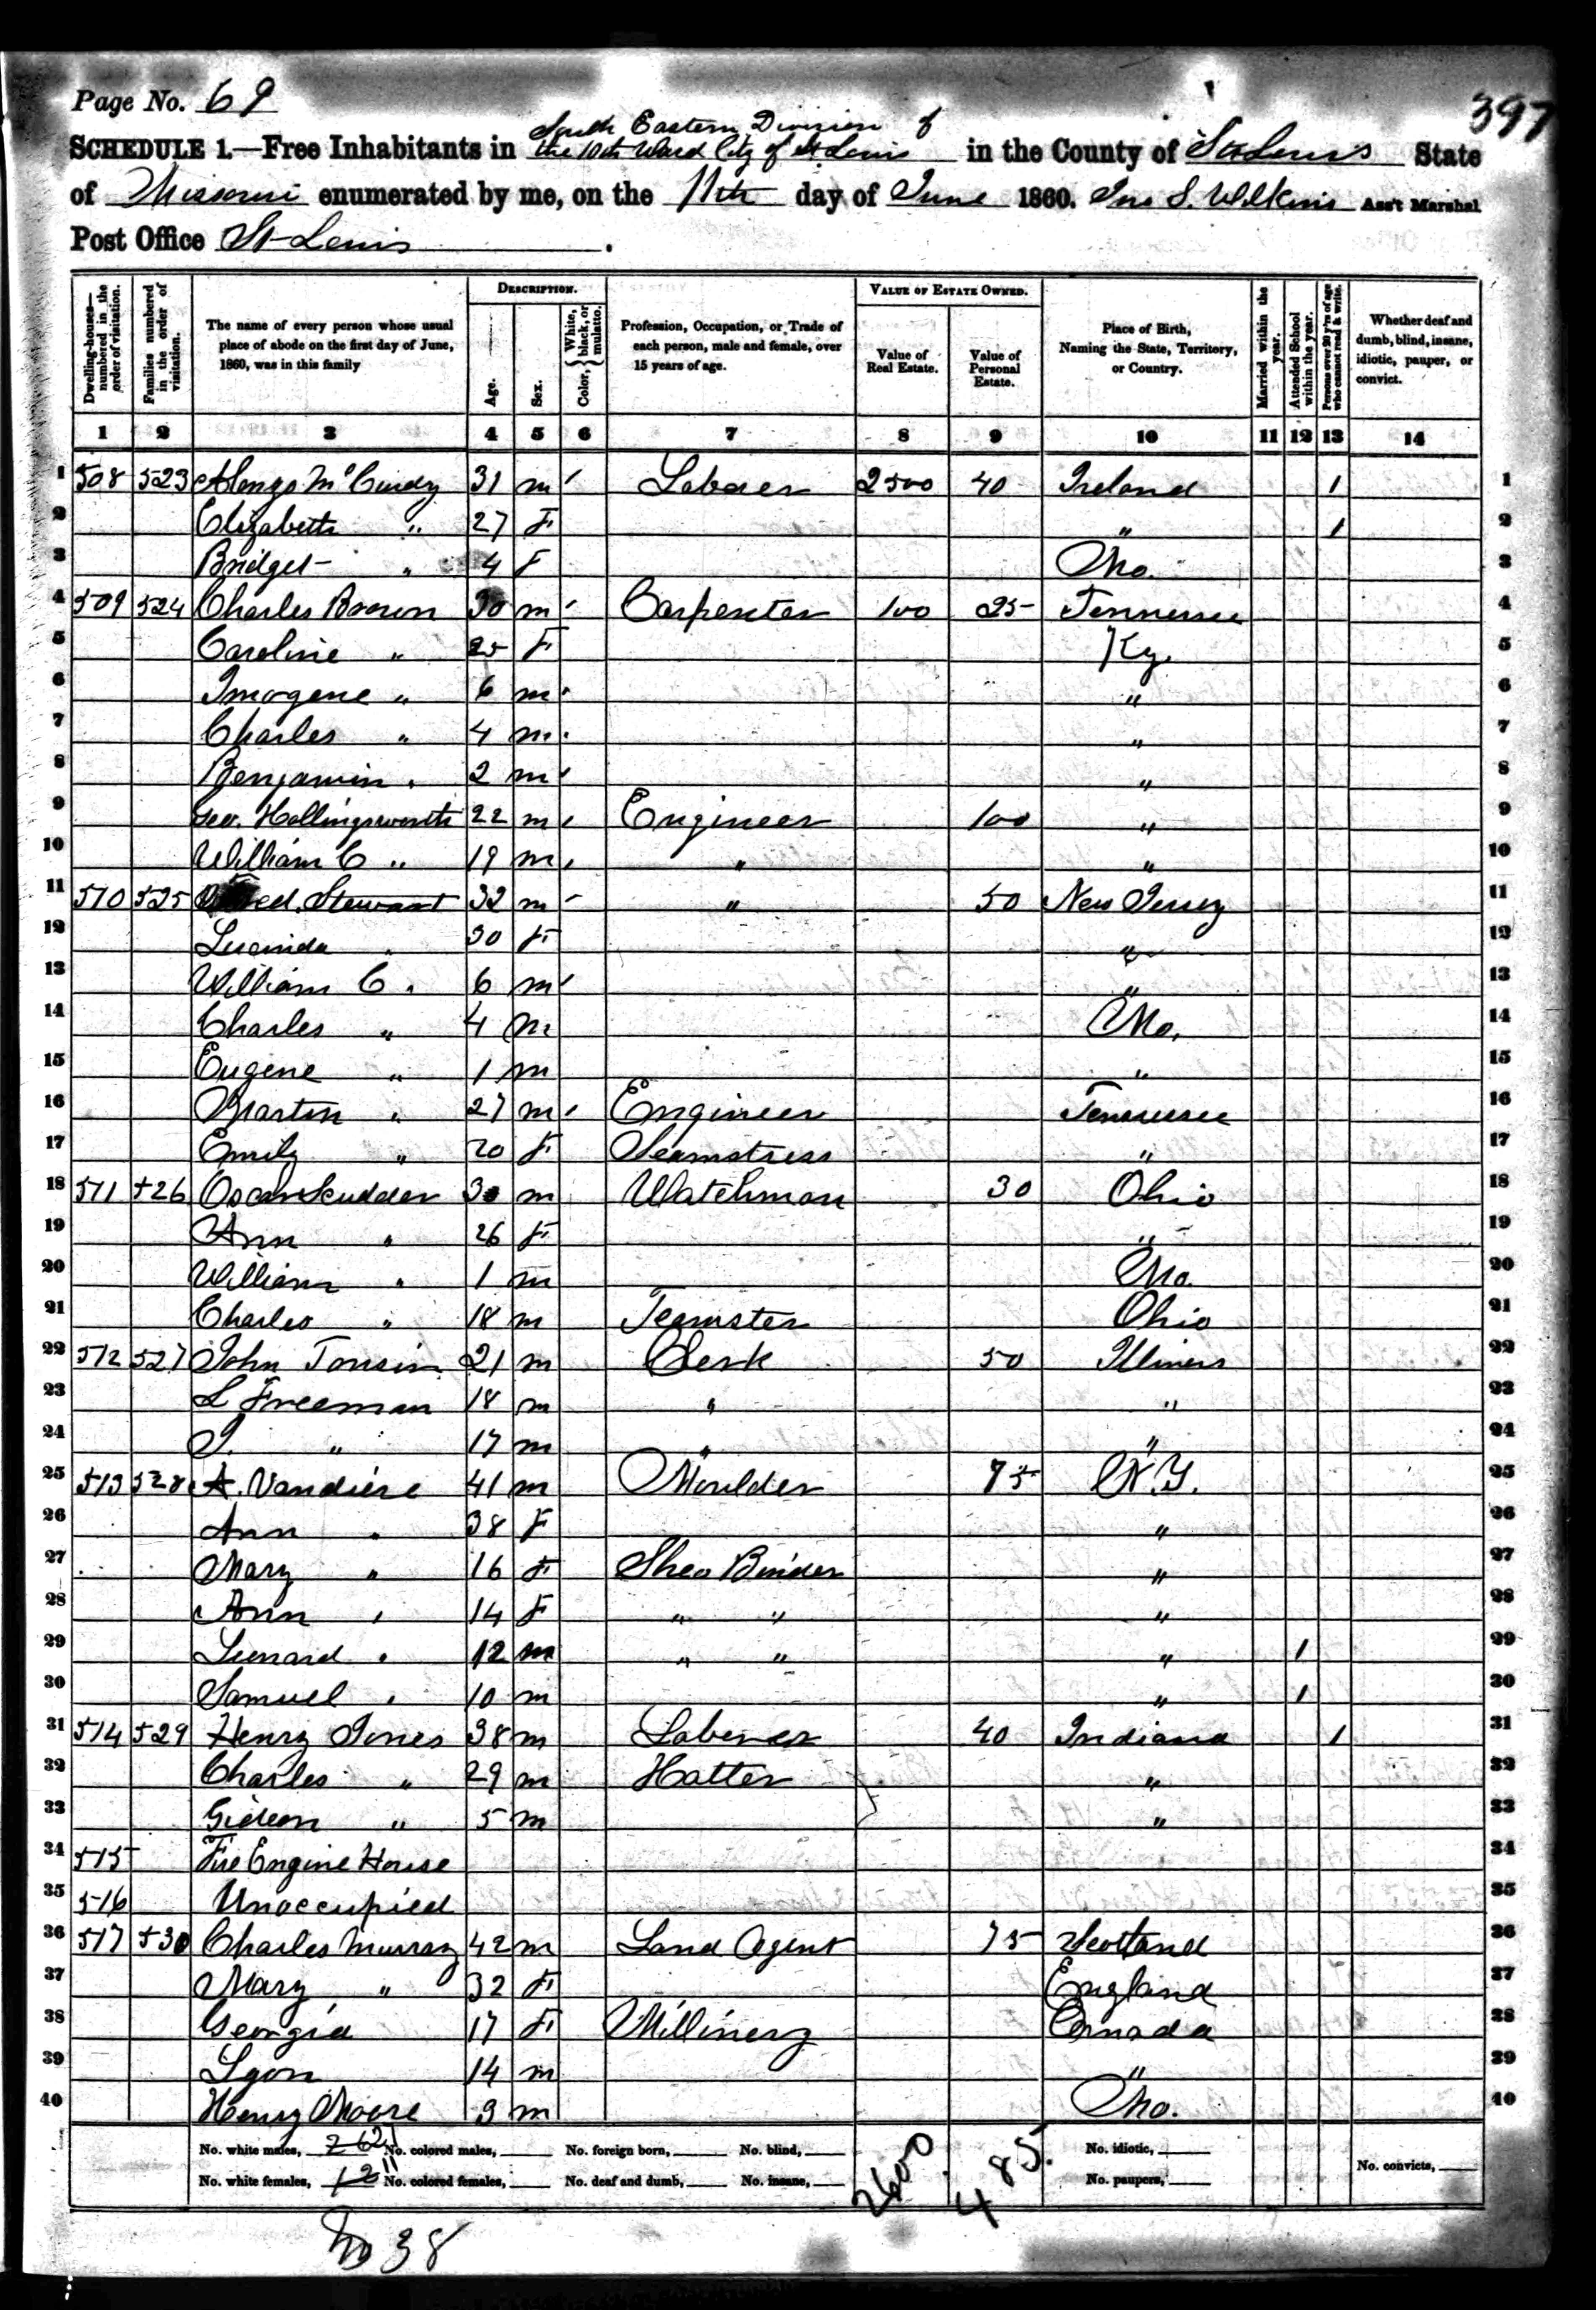 Page No. 69
397
South Eastern Division of
SCHEDULE 1.—Free Inhabitants in the 10th Ward City of St Louis in the County of St Louis State
of Missouri enumerated by me, on the 11th day of June 1860. Jno S. Wilkins Ass't Marshal
Post Office St Louis.
Dwelling-houses—numbered in the order of visitation.
Families numbered in the order of visitation.
The name of every person whose usual place of abode on the first day of June, 1860, was in this family
DESCRIPTION.
Age.
Sex.
Color, { White, black, or mulatto.
Profession, Occupation, or Trade of each person, male and female, over 15 years of age.
VALUE OF ESTATE OWNED.
Value of Real Estate.
Value of Personal Estate.
Place of Birth, Naming the State, Territory, or Country.
Married within the year.
Attended School within the year.
Persons over 20 y'rs of age who cannot read & write.
Whether deaf and dumb, blind, insane, idiotic, pauper, or convict.
1 2 3 4 5 6 7 8 9 10 11 12 13 14
1 508 523 Alonzo McCurdy 31 m Laborer 2500 40 Ireland 1 1
2 Elizabeth " 27 F " 1 2
3 Bridget " 4 F Mo. 3
4 509 524 Charles Brown 30 m Carpenter 100 25 Tennessee 4
5 Caroline " 25 F Ky. 5
6 Imogene " 6 m " 6
7 Charles " 4 m " 7
8 Benjamin " 2 m " 8
9 Geo. Hollingsworth 22 m Engineer 100 " 9
10 William C " 19 m " " 10
11 510 525 Stewart 32 m " 50 New Jersey 11
12 Lucinda " 30 F " 12
13 William C " 6 m " 13
14 Charles " 4 m Mo. 14
15 Eugene " 1 m " 15
16 Martin " 27 m Engineer Tennessee 16
17 Emily " 20 F Seamstress " 17
18 511 526 Oscar Scudder 30 m Watchman 30 Ohio 18
19 Ann " 26 F " 19
20 William " 1 m Mo. 20
21 Charles " 18 m Teamster Ohio 21
22 512 527 John Tonsin 21 m Clerk 50 Illinois 22
23 L Freeman 18 m " " 23
24 J. " 17 m " " 24
25 513 528 A. Vandiere 41 m Moulder 75 N.Y. 25
26 Ann " 38 F " 26
27 Mary " 16 F Shoe Binder " 27
28 Ann " 14 F " " " 28
29 Lenard " 12 m " " " 1 29
30 Samuel " 10 m " 1 30
31 514 529 Henry Jones 38 m Laborer 40 Indiana 1 31
32 Charles " 29 m Hatter " 32
33 Gideon " 5 m " 33
34 515 Fire Engine House 34
35 516 Unoccupied 35
36 517 530 Charles Murray 42 m Land Agent 75 Scotland 36
37 Mary " 32 F England 37
38 Georgia 17 F Millinery Canada 38
39 Lyon 14 m " 39
40 Henry Moore 3 m Mo. 40
No. white males, 26 No. colored males, No. foreign born, No. blind, No. idiotic,
No. white females, 12 No. colored females, No. deaf and dumb, No. insane, 2600 485. No. paupers, No. convicts,
38